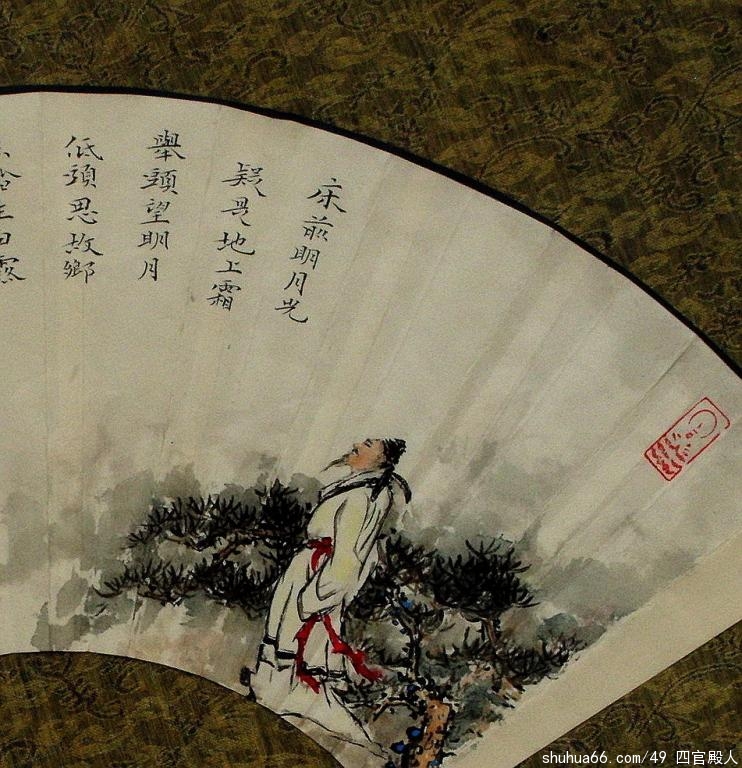 床前明月光
疑是地上霜
舉頭望明月
低頭思故鄉
shuhua66.com/49 四官殿人